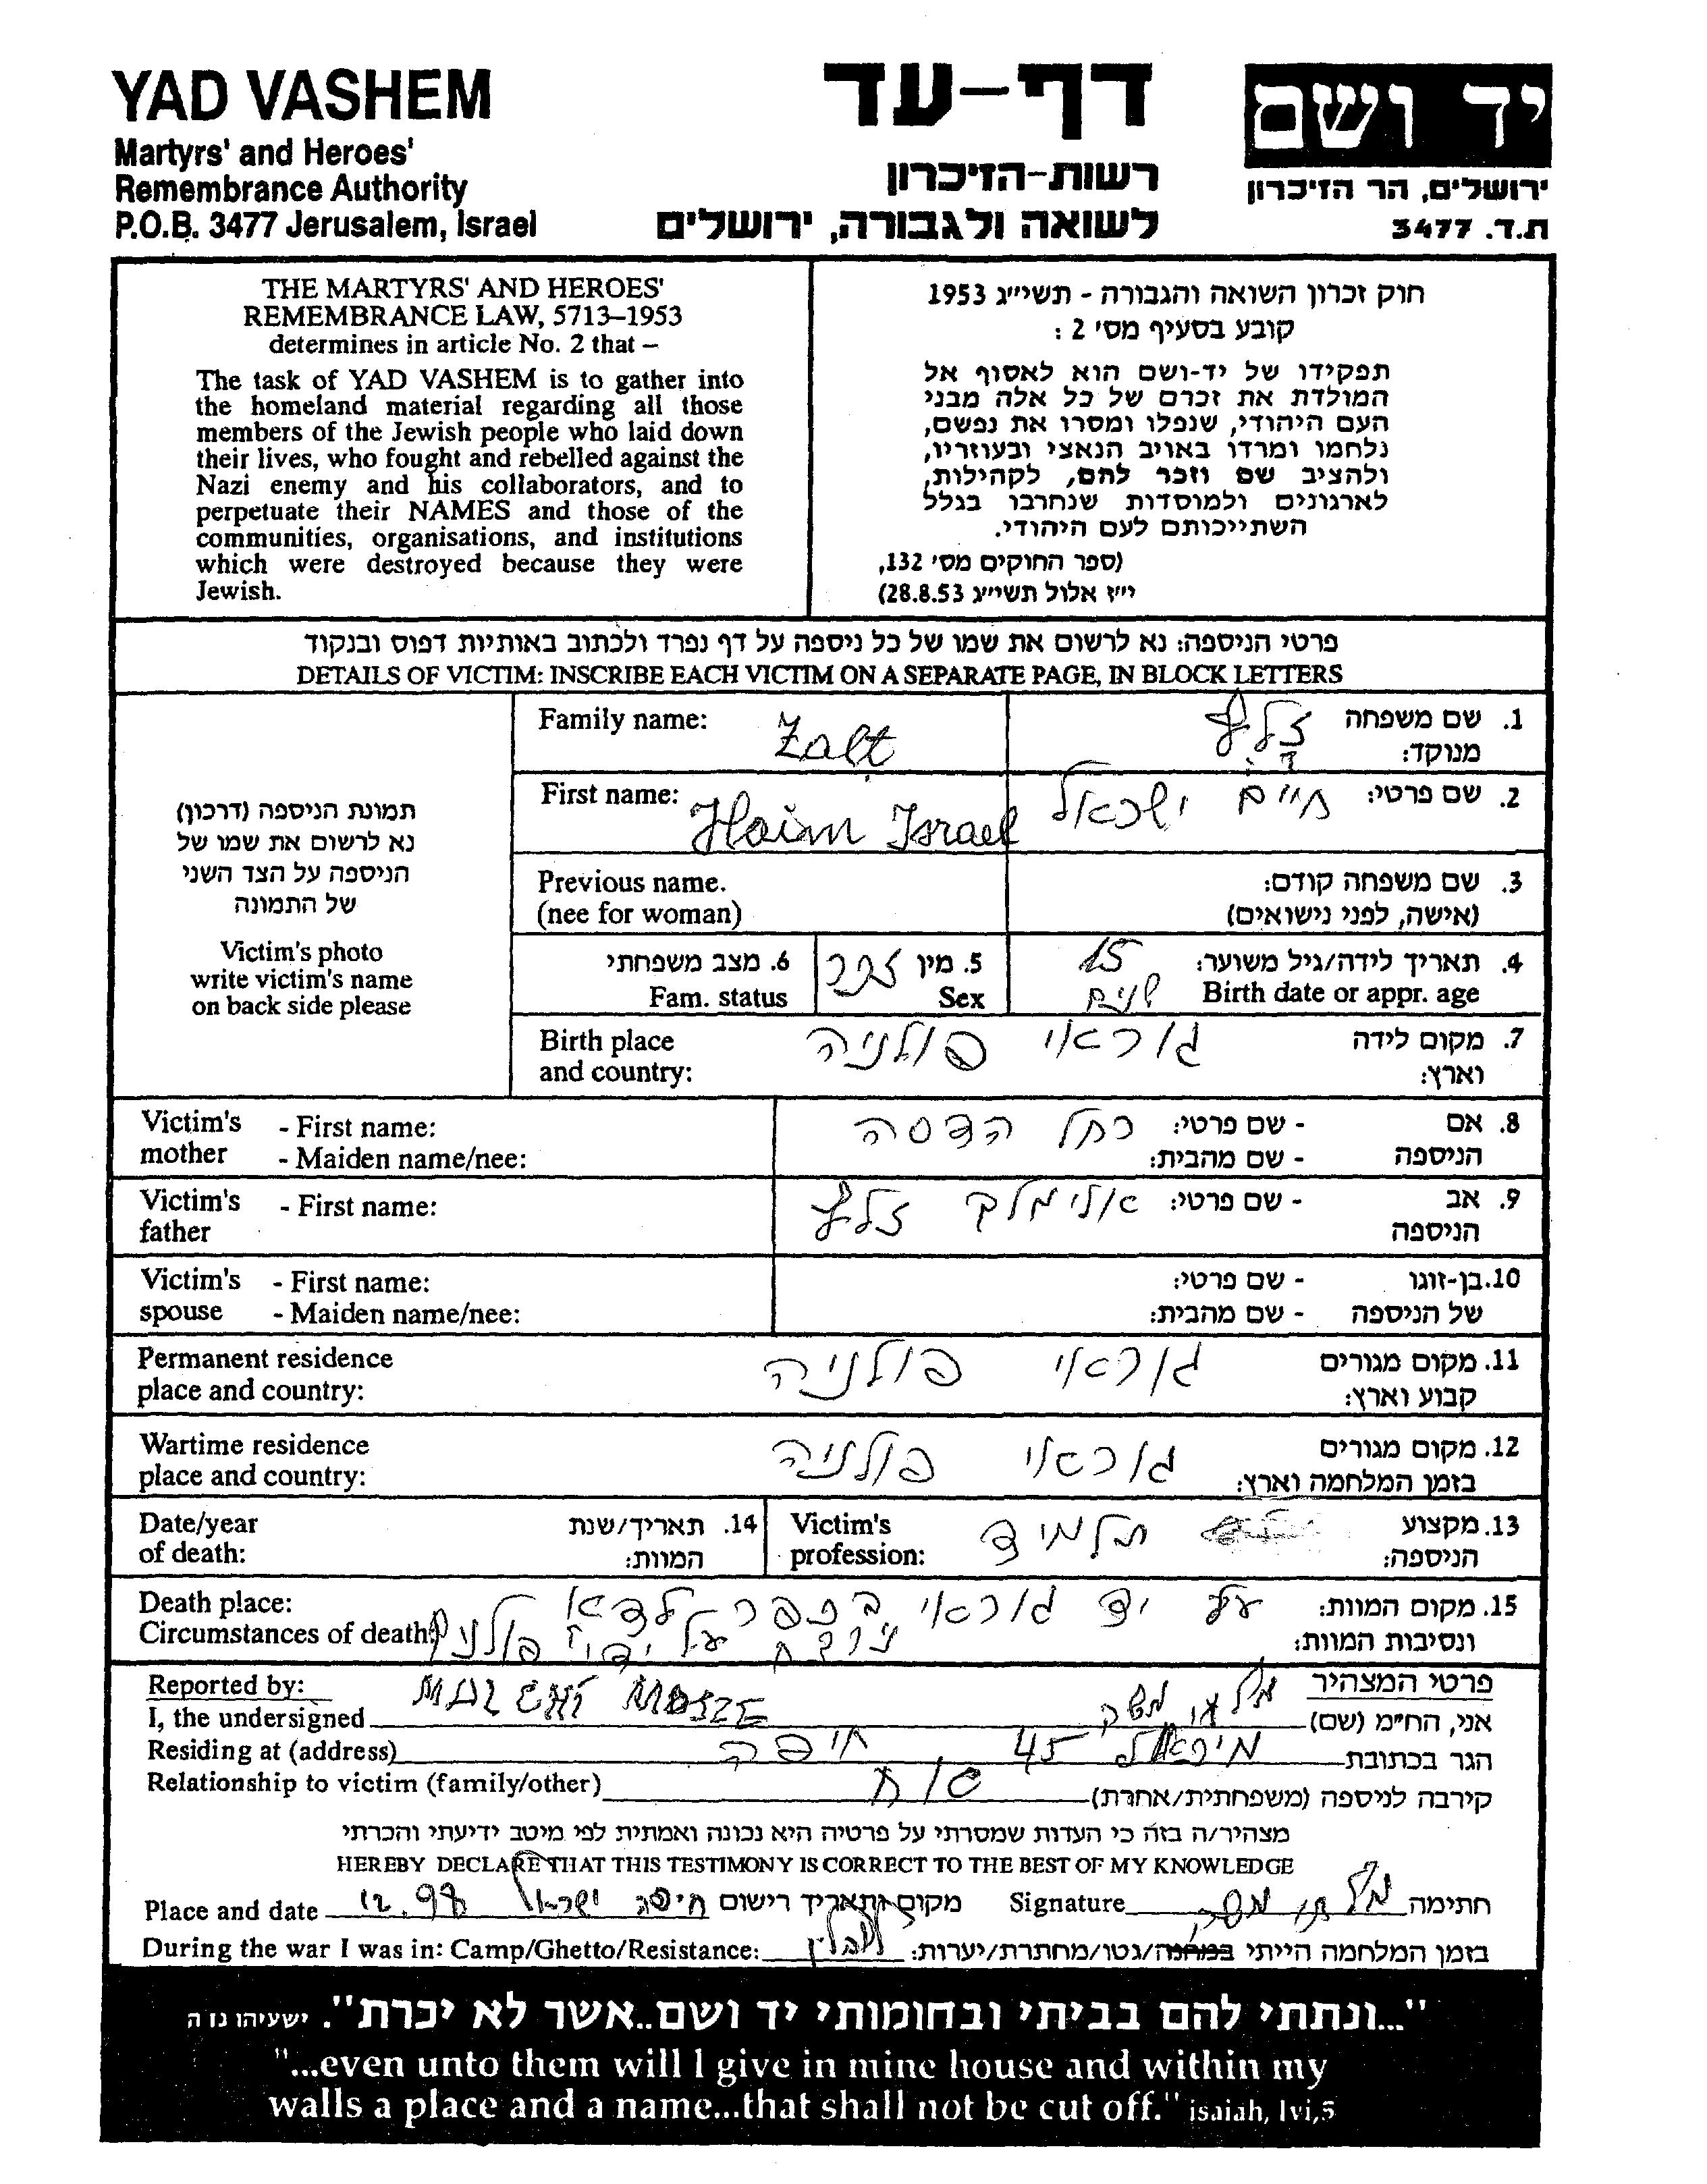 YAD VASHEM
Martyrs' and Heroes'
Remembrance Authority
P.O.B. 3477 Jerusalem, Israel
דף-עד
רשות-הזיכרון
לשואה ולגבורה, ירושלים
יד ושם
ירושלים, הר הזיכרון
ת.ד. 3477
THE MARTYRS' AND HEROES'
REMEMBRANCE LAW, 5713–1953
determines in article No. 2 that –
The task of YAD VASHEM is to gather into
the homeland material regarding all those
members of the Jewish people who laid down
their lives, who fought and rebelled against the
Nazi enemy and his collaborators, and to
perpetuate their NAMES and those of the
communities, organisations, and institutions
which were destroyed because they were
Jewish.
חוק זכרון השואה והגבורה - תשי״ג 1953
קובע בסעיף מס׳ 2 :
תפקידו של יד-ושם הוא לאסוף אל
המולדת את זכרם של כל אלה מבני
העם היהודי, שנפלו ומסרו את נפשם,
נלחמו ומרדו באויב הנאצי ובעוזריו,
ולהציב שם וזכר להם, לקהילות,
לארגונים ולמוסדות שנחרבו בגלל
השתייכותם לעם היהודי.
(ספר החוקים מס׳ 132,
י״ז אלול תשי״ג 28.8.53)
פרטי הניספה: נא לרשום את שמו של כל ניספה על דף נפרד ולכתוב באותיות דפוס ובנקוד
DETAILS OF VICTIM: INSCRIBE EACH VICTIM ON A SEPARATE PAGE, IN BLOCK LETTERS
תמונת הניספה (דרכון)
נא לרשום את שמו של
הניספה על הצד השני
של התמונה
Victim's photo
write victim's name
on back side please
Family name: Zalt זלץ 1. שם משפחה
מנוקד:
First name: Haim Israel חיים ישראל 2. שם פרטי:
Previous name. 3. שם משפחה קודם:
(nee for woman) (אישה, לפני נישואים)
6. מצב משפחתי 5. מין זכר 15 4. תאריך לידה/גיל משוער:
Fam. status Sex שנים Birth date or appr. age
Birth place גוראי פולניה 7. מקום לידה
and country: וארץ:
Victim's - First name: רחל הדסה - שם פרטי: 8. אם
mother - Maiden name/nee: - שם מהבית: הניספה
Victim's - First name: אלימלך זלץ - שם פרטי: 9. אב
father הניספה
Victim's - First name: - שם פרטי: 10. בן-זוגו
spouse - Maiden name/nee: - שם מהבית: של הניספה
Permanent residence גוראי פולניה 11. מקום מגורים
place and country: קבוע וארץ:
Wartime residence גוראי פולניה 12. מקום מגורים
place and country: בזמן המלחמה וארץ:
Date/year 14. תאריך/שנת Victim's תלמיד 13. מקצוע
of death: המוות: profession: הניספה:
Death place: יד גוראי בכפר 15. מקום המוות:
Circumstances of death: נרצח על ידי פולנים ונסיבות המוות:
Reported by: פרטי המצהיר
I, the undersigned MALCHI MOSZE משה אני, הח״מ (שם)
Residing at (address) 45 חיפה הגר בכתובת
Relationship to victim (family/other) אח קירבה לניספה (משפחתית/אחרת)
מצהיר/ה בזה כי העדות שמסרתי על פרטיה היא נכונה ואמתית לפי מיטב ידיעתי והכרתי
HEREBY DECLARE THAT THIS TESTIMONY IS CORRECT TO THE BEST OF MY KNOWLEDGE
Place and date 12.98 חיפה ישראל מקום ותאריך רישום Signature משה חתימה
During the war I was in: Camp/Ghetto/Resistance: בזמן המלחמה הייתי במחנה/גטו/מחתרת/יערות:
"...ונתתי להם בביתי ובחומותי יד ושם..אשר לא יכרת". ישעיהו נו ה
"...even unto them will I give in mine house and within my
walls a place and a name...that shall not be cut off." isaiah, lvi,5